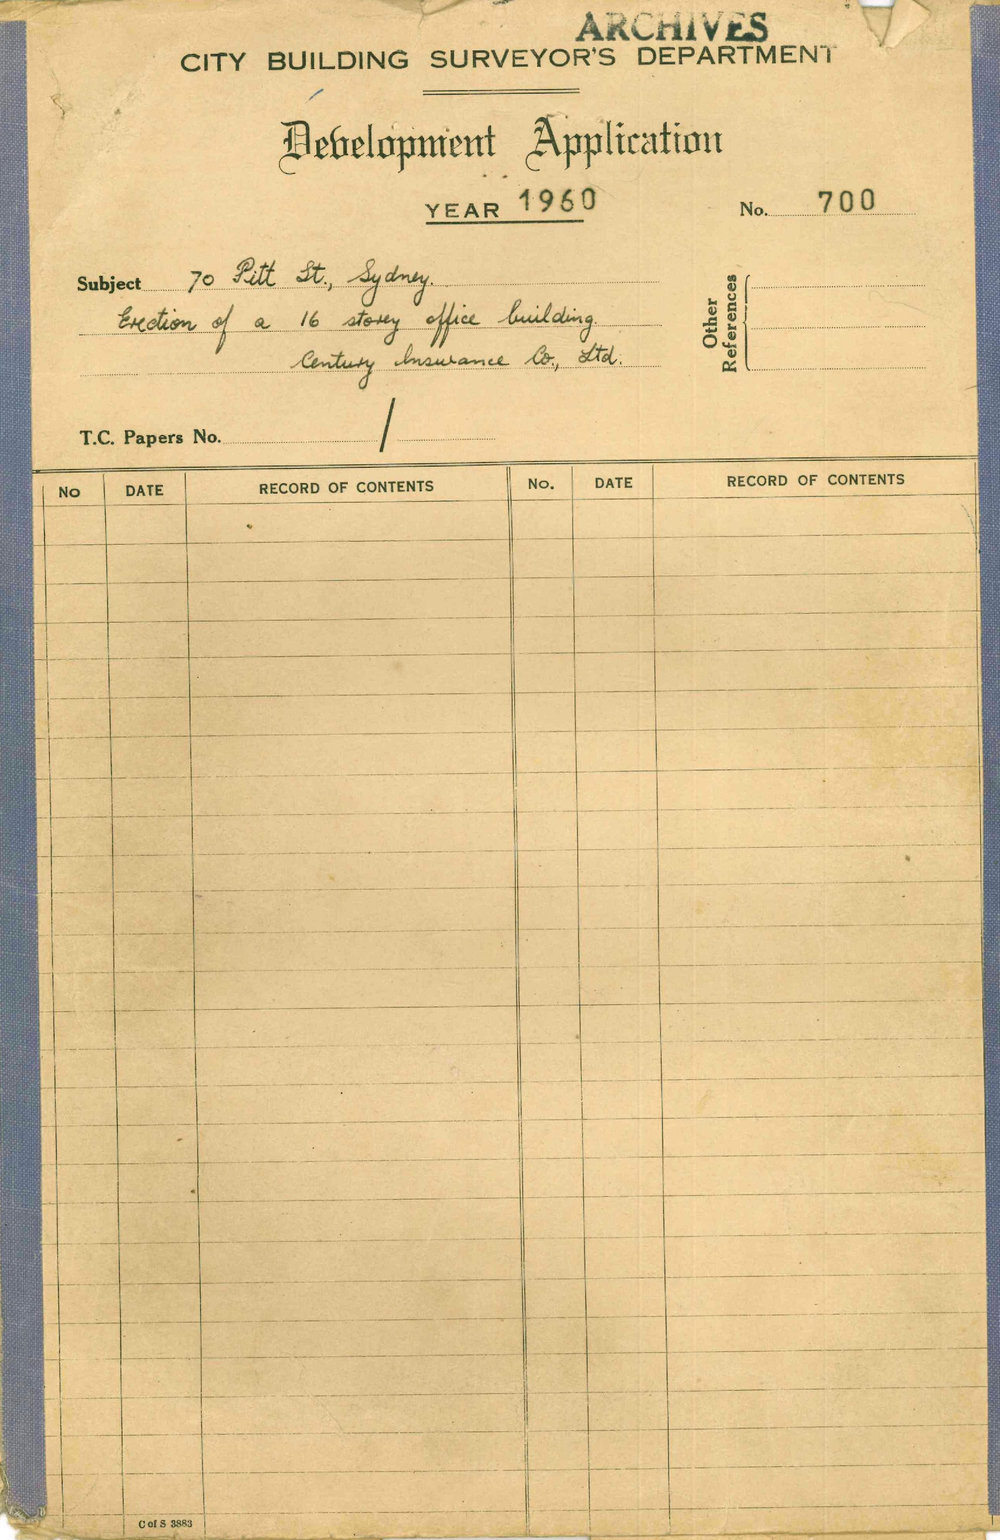 ARCHIVES
CITY BUILDING SURVEYOR'S DEPARTMENT
Development Application
YEAR 1960
No. 700
Subject 70 Pitt St., Sydney.
Erection of a 16 storey office building
Century Insurance Co., Ltd.
Other
References
T.C. Papers No. /
No DATE RECORD OF CONTENTS No. DATE RECORD OF CONTENTS
C of S 3883